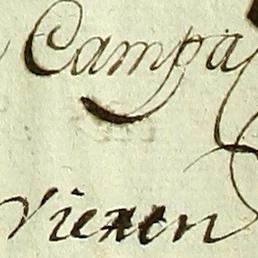 Campa
vienen